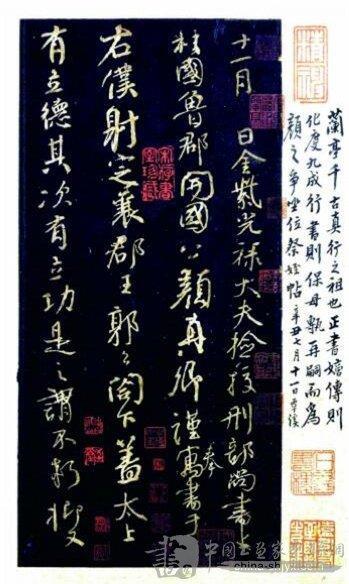 蘭亭千古真行之祖也正書嫡傳則
化度九成行書則保母甎再嗣而為
顏之争坐位祭姪帖 辛丑七月十一日
十一月 日金紫光祿大夫檢校刑部尚書上
柱國魯郡開國公顏真卿謹奉寓書于
右僕射定襄郡王郭公閤下蓋太上
有立德其次有立功是之謂不朽抑又